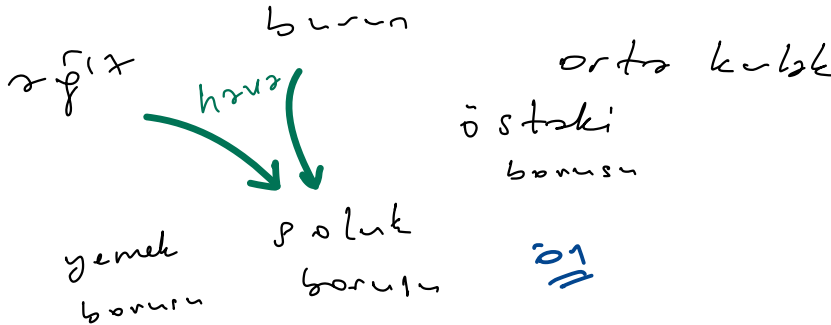 burun
ağız
hava
orta kulak
östaki
borusu
soluk
borusu
yemek
borusu
ö1